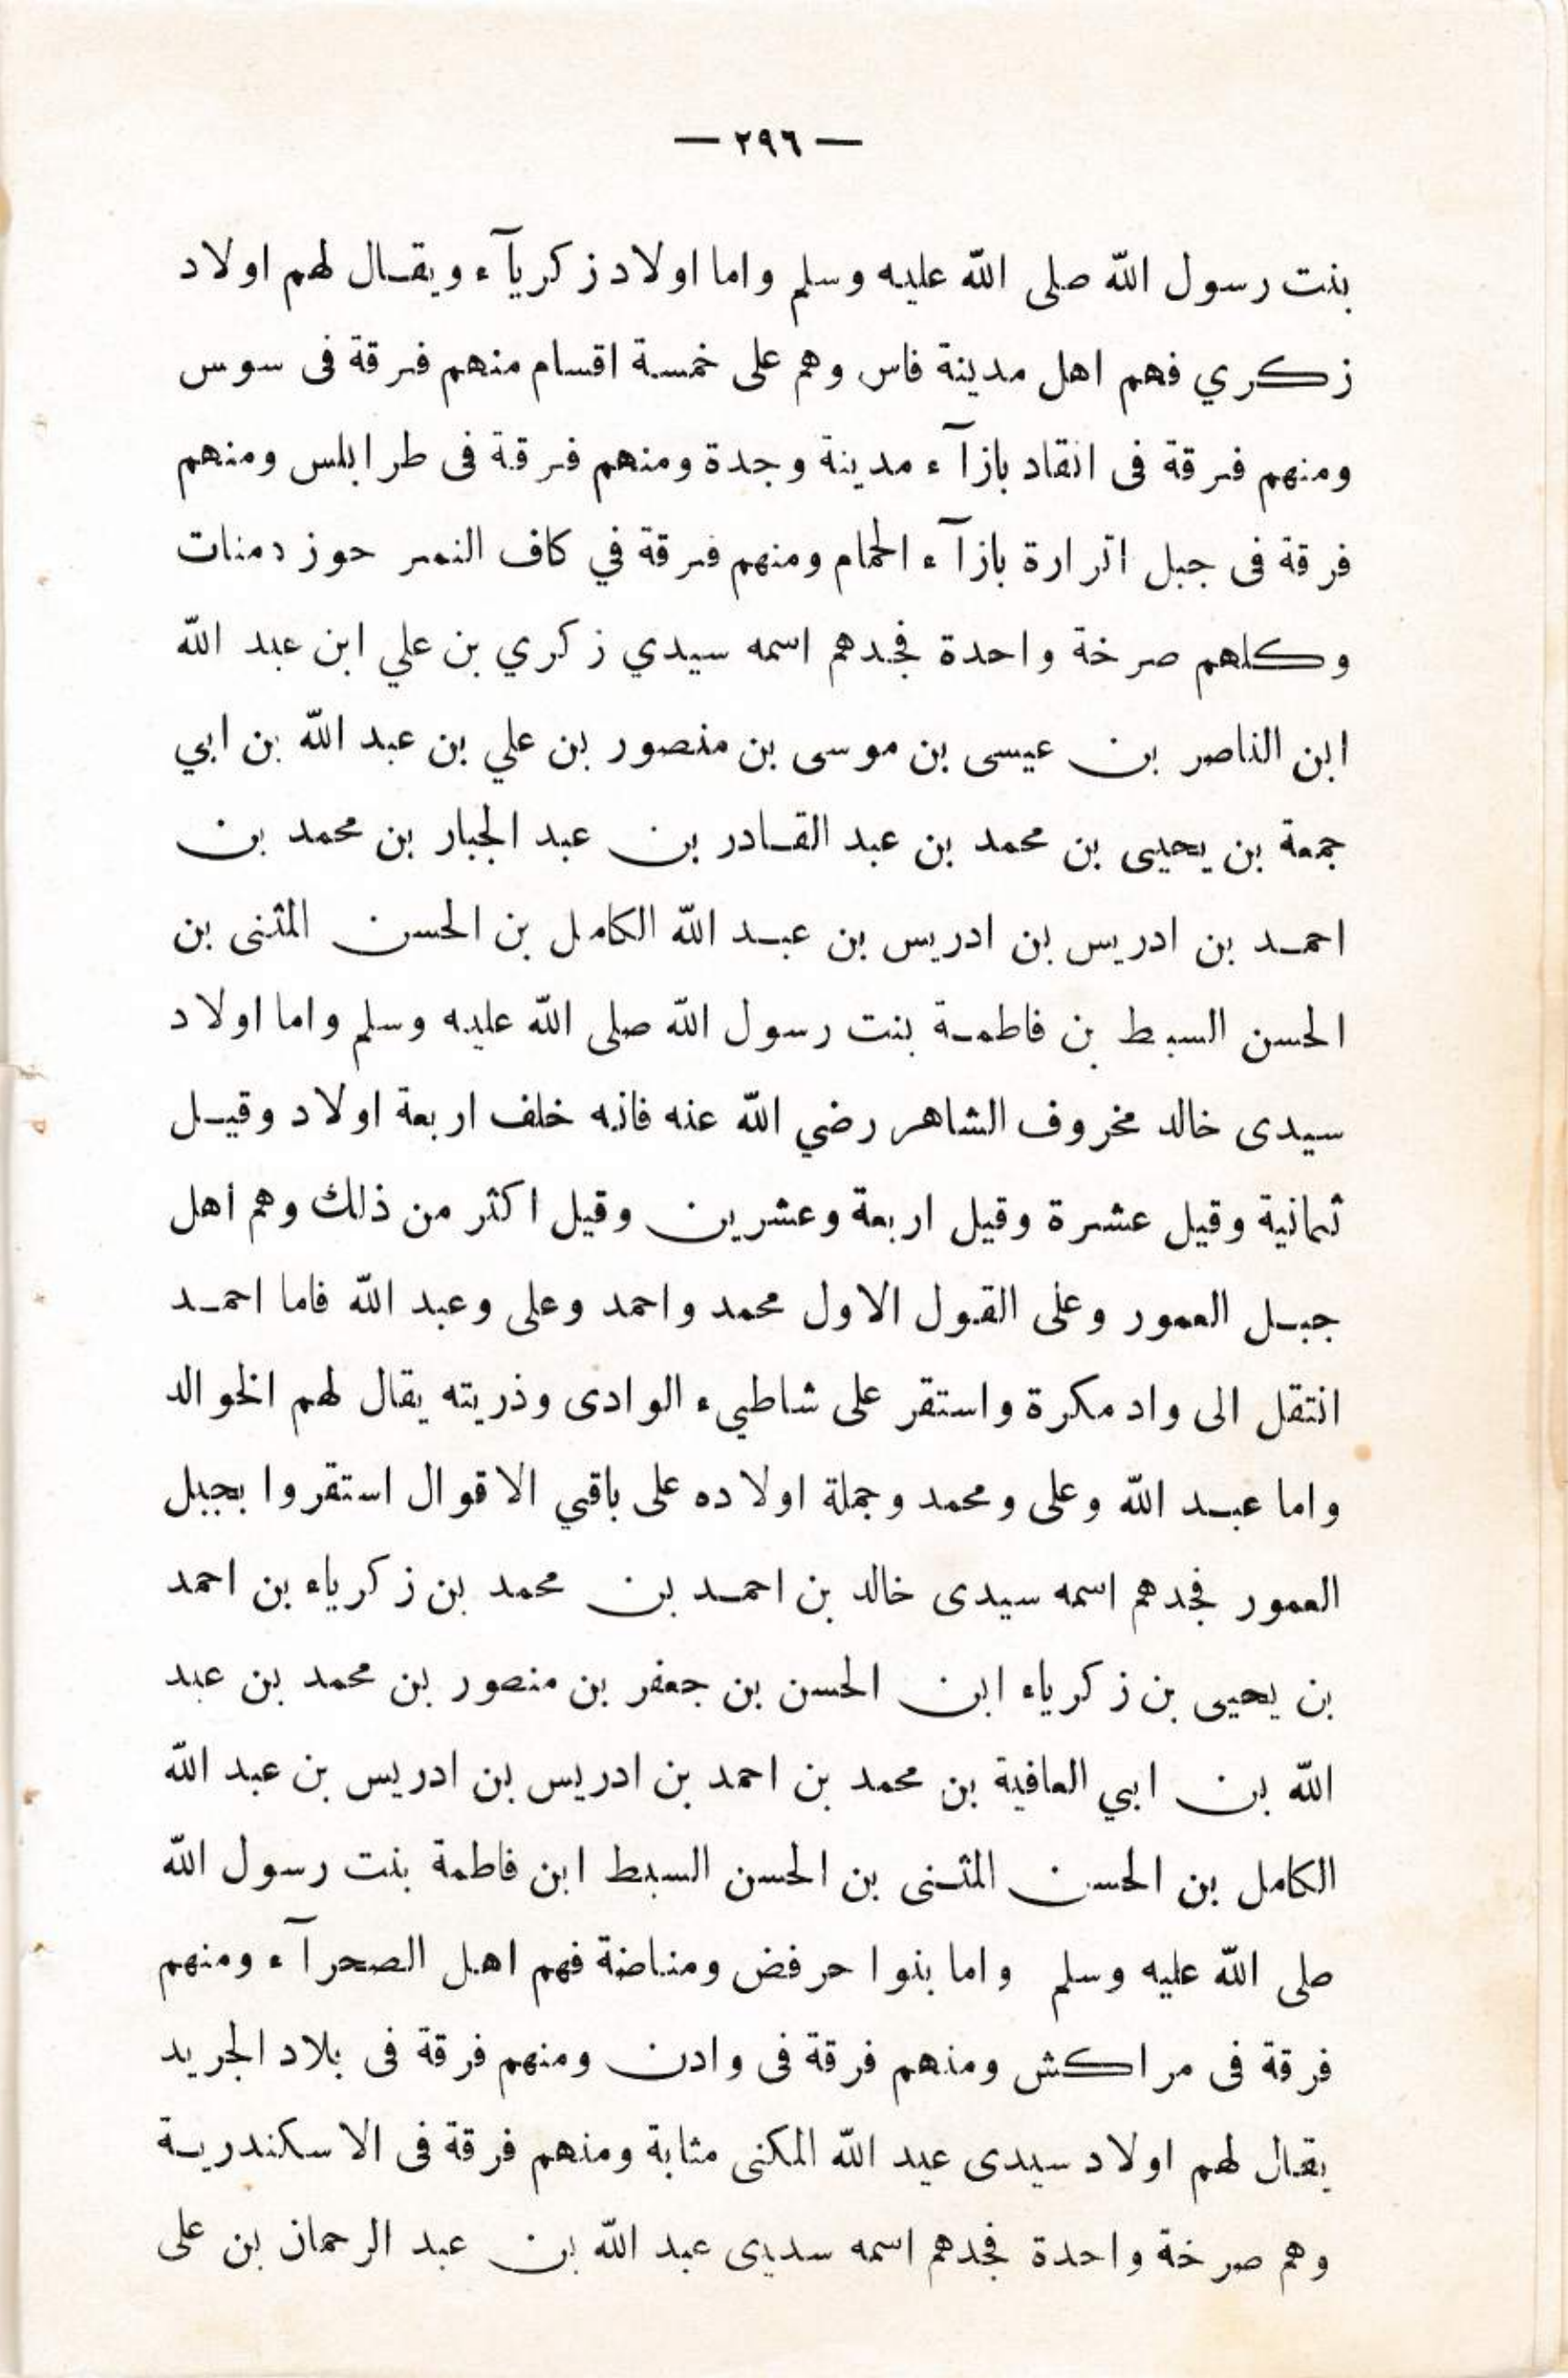 — ٢٩٦ —
بنت رسول الله صلى الله عليه وسلم واما اولاد زكريآء ويقال لهم اولاد
زكري فهم اهل مدينة فاس وهم على خمسة اقسام منهم فرقة فى سوس
ومنهم فرقة فى انقاد بازآء مدينة وجدة ومنهم فرقة فى طرابلس ومنهم
فرقة فى جبل اترارة بازآء الحمام ومنهم فرقة في كاف النمر حوز دمنات
وكلهم صرخة واحدة فجدهم اسمه سيدي زكري بن علي ابن عبد الله
ابن الناصر بن عيسى بن موسى بن منصور بن علي بن عبد الله بن ابي
جمعة بن يحيى بن محمد بن عبد القادر بن عبد الجبار بن محمد بن
احمد بن ادريس بن ادريس بن عبد الله الكامل بن الحسن المثنى بن
الحسن السبط بن فاطمة بنت رسول الله صلى الله عليه وسلم واما اولاد
سيدى خالد مخروف الشاهر رضي الله عنه فانه خلف اربعة اولاد وقيل
ثمانية وقيل عشرة وقيل اربعة وعشرين وقيل اكثر من ذلك وهم اهل
جبل العمور وعلى القول الاول محمد واحمد وعلى وعبد الله فاما احمد
انتقل الى واد مكرة واستقر على شاطيء الوادى وذريته يقال لهم الخوالد
واما عبد الله وعلى ومحمد وجملة اولاده على باقي الاقوال استقروا بجبل
العمور فجدهم اسمه سيدى خالد بن احمد بن محمد بن زكرياء بن احمد
بن يحيى بن زكرياء ابن الحسن بن جعفر بن منصور بن محمد بن عبد
الله بن ابي العافية بن محمد بن احمد بن ادريس بن ادريس بن عبد الله
الكامل بن الحسن المثنى بن الحسن السبط ابن فاطمة بنت رسول الله
صلى الله عليه وسلم واما بنوا حرفض ومناضة فهم اهل الصحرآء ومنهم
فرقة فى مراكش ومنهم فرقة فى وادن ومنهم فرقة فى بلاد الجريد
يقال لهم اولاد سيدى عبد الله المكنى مثابة ومنهم فرقة فى الاسكندرية
وهم صرخة واحدة فجدهم اسمه سيدى عبد الله بن عبد الرحمان بن على